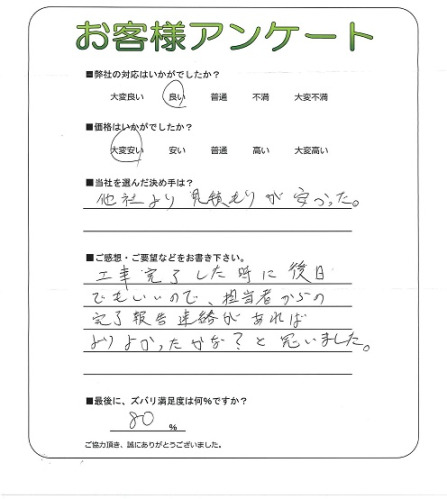 お客様アンケート
■弊社の対応はいかがでしたか？
大変良い 良い 普通 不満 大変不満
■価格はいかがでしたか？
大変安い 安い 普通 高い 大変高い
■当社を選んだ決め手は？
他社より見積もりが安かった。
■ご感想・ご要望などをお書き下さい。
工事完了した時に後日
でもいいので、担当者からの
完了報告連絡があれば
よりよかったかな？と思いました。
■最後に、ズバリ満足度は何％ですか？
80 %
ご協力頂き、誠にありがとうございました。